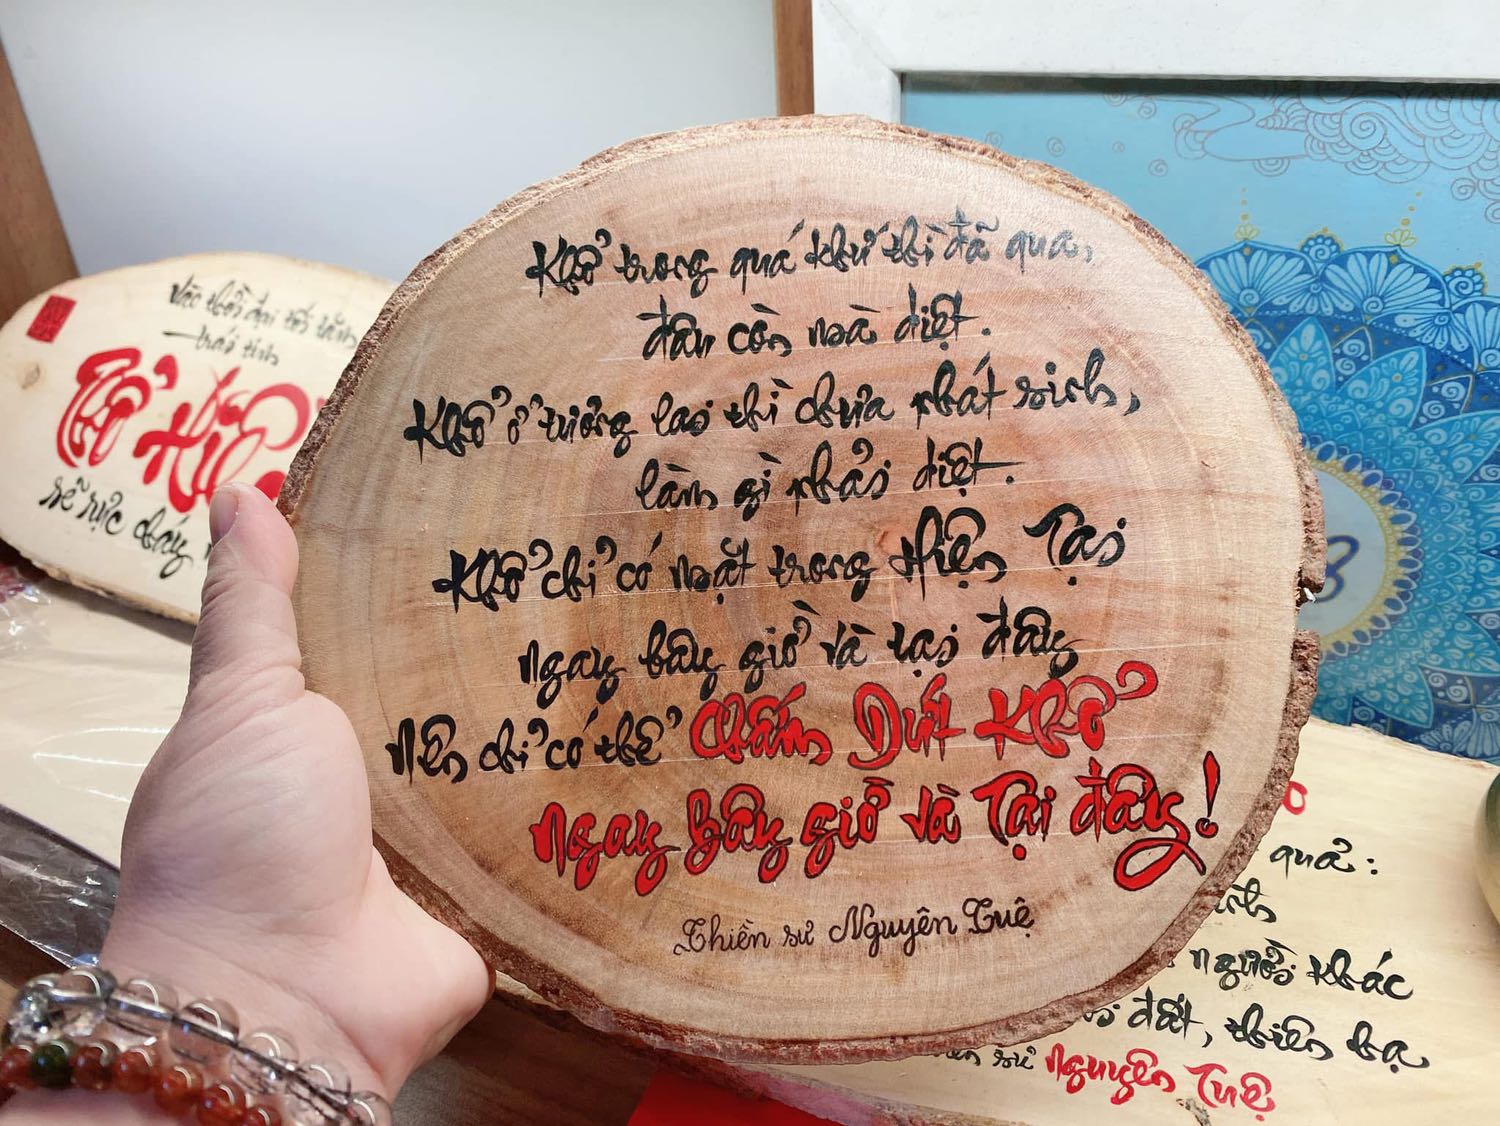 Khổ trong quá khứ thì đã qua,
đâu còn mà diệt.
Khổ ở tương lai thì chưa phát sinh,
làm gì phải diệt.
Khổ chỉ có mặt trong Hiện Tại
ngay bây giờ và tại đây
Nên chỉ có thể Chấm Dứt Khổ
ngay bây giờ và Tại đây!
Thiền sư Nguyên Tuệ
trái tim
sẽ rực cháy
quả:
người khác
đất, thiên hạ
sư Nguyên Tuệ